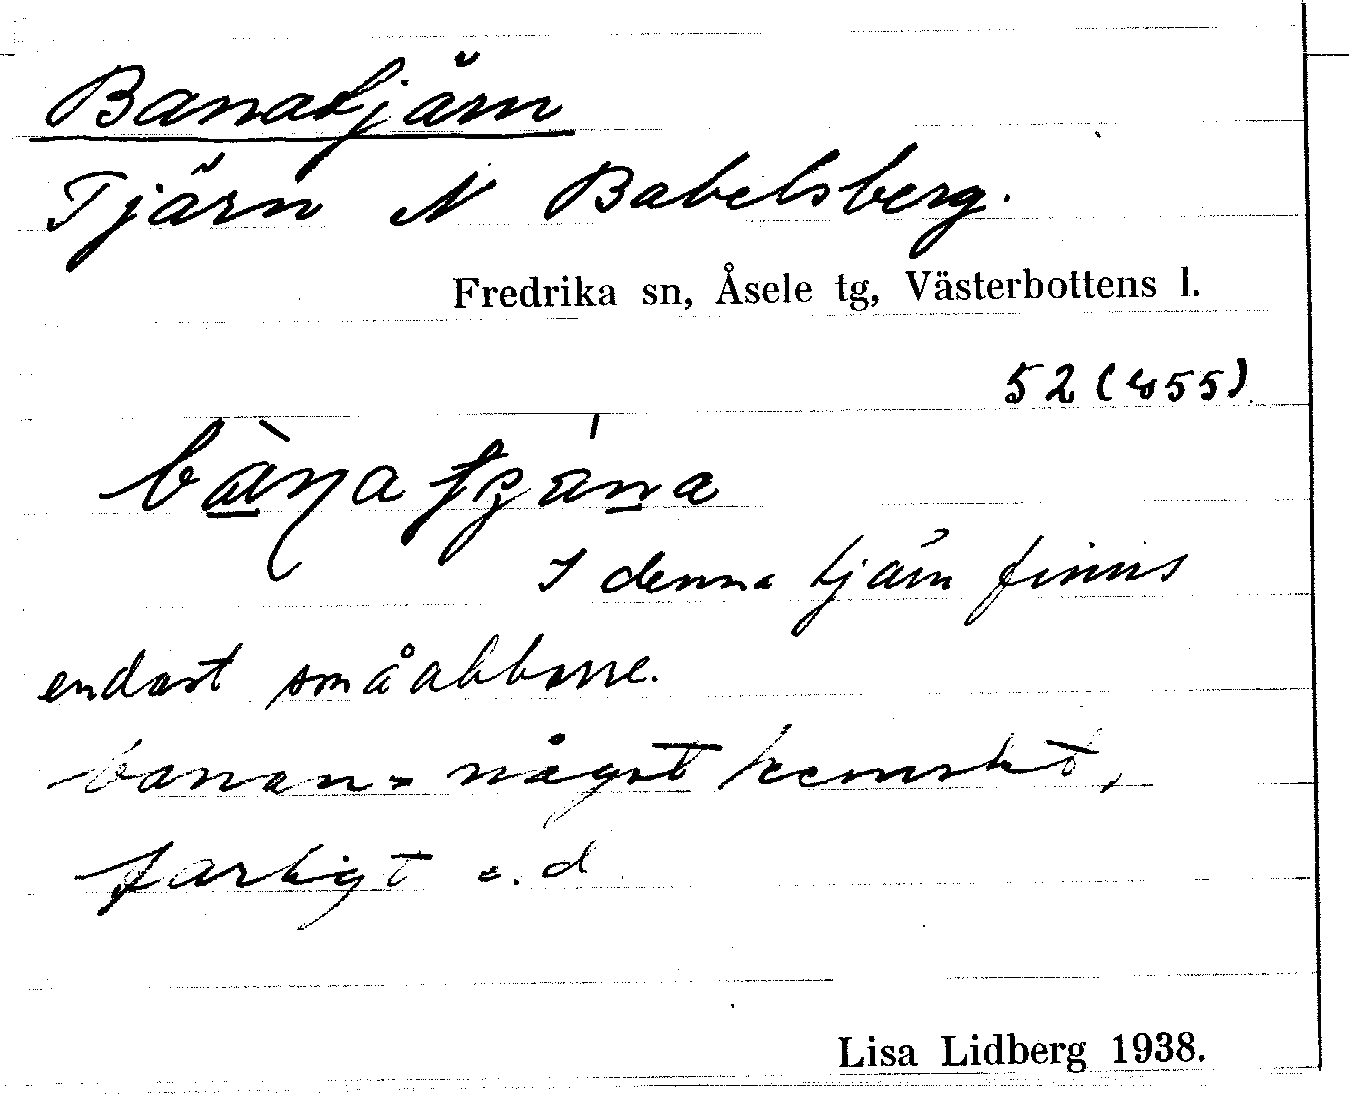 Banatjärn
Tjärn N Babelsberg.
Fredrika sn, Åsele tg, Västerbottens l.
52 (455)
I denna tjärn finns
endast småabborre.
banan = något hemskt,
farligt o.d
Lisa Lidberg 1938.